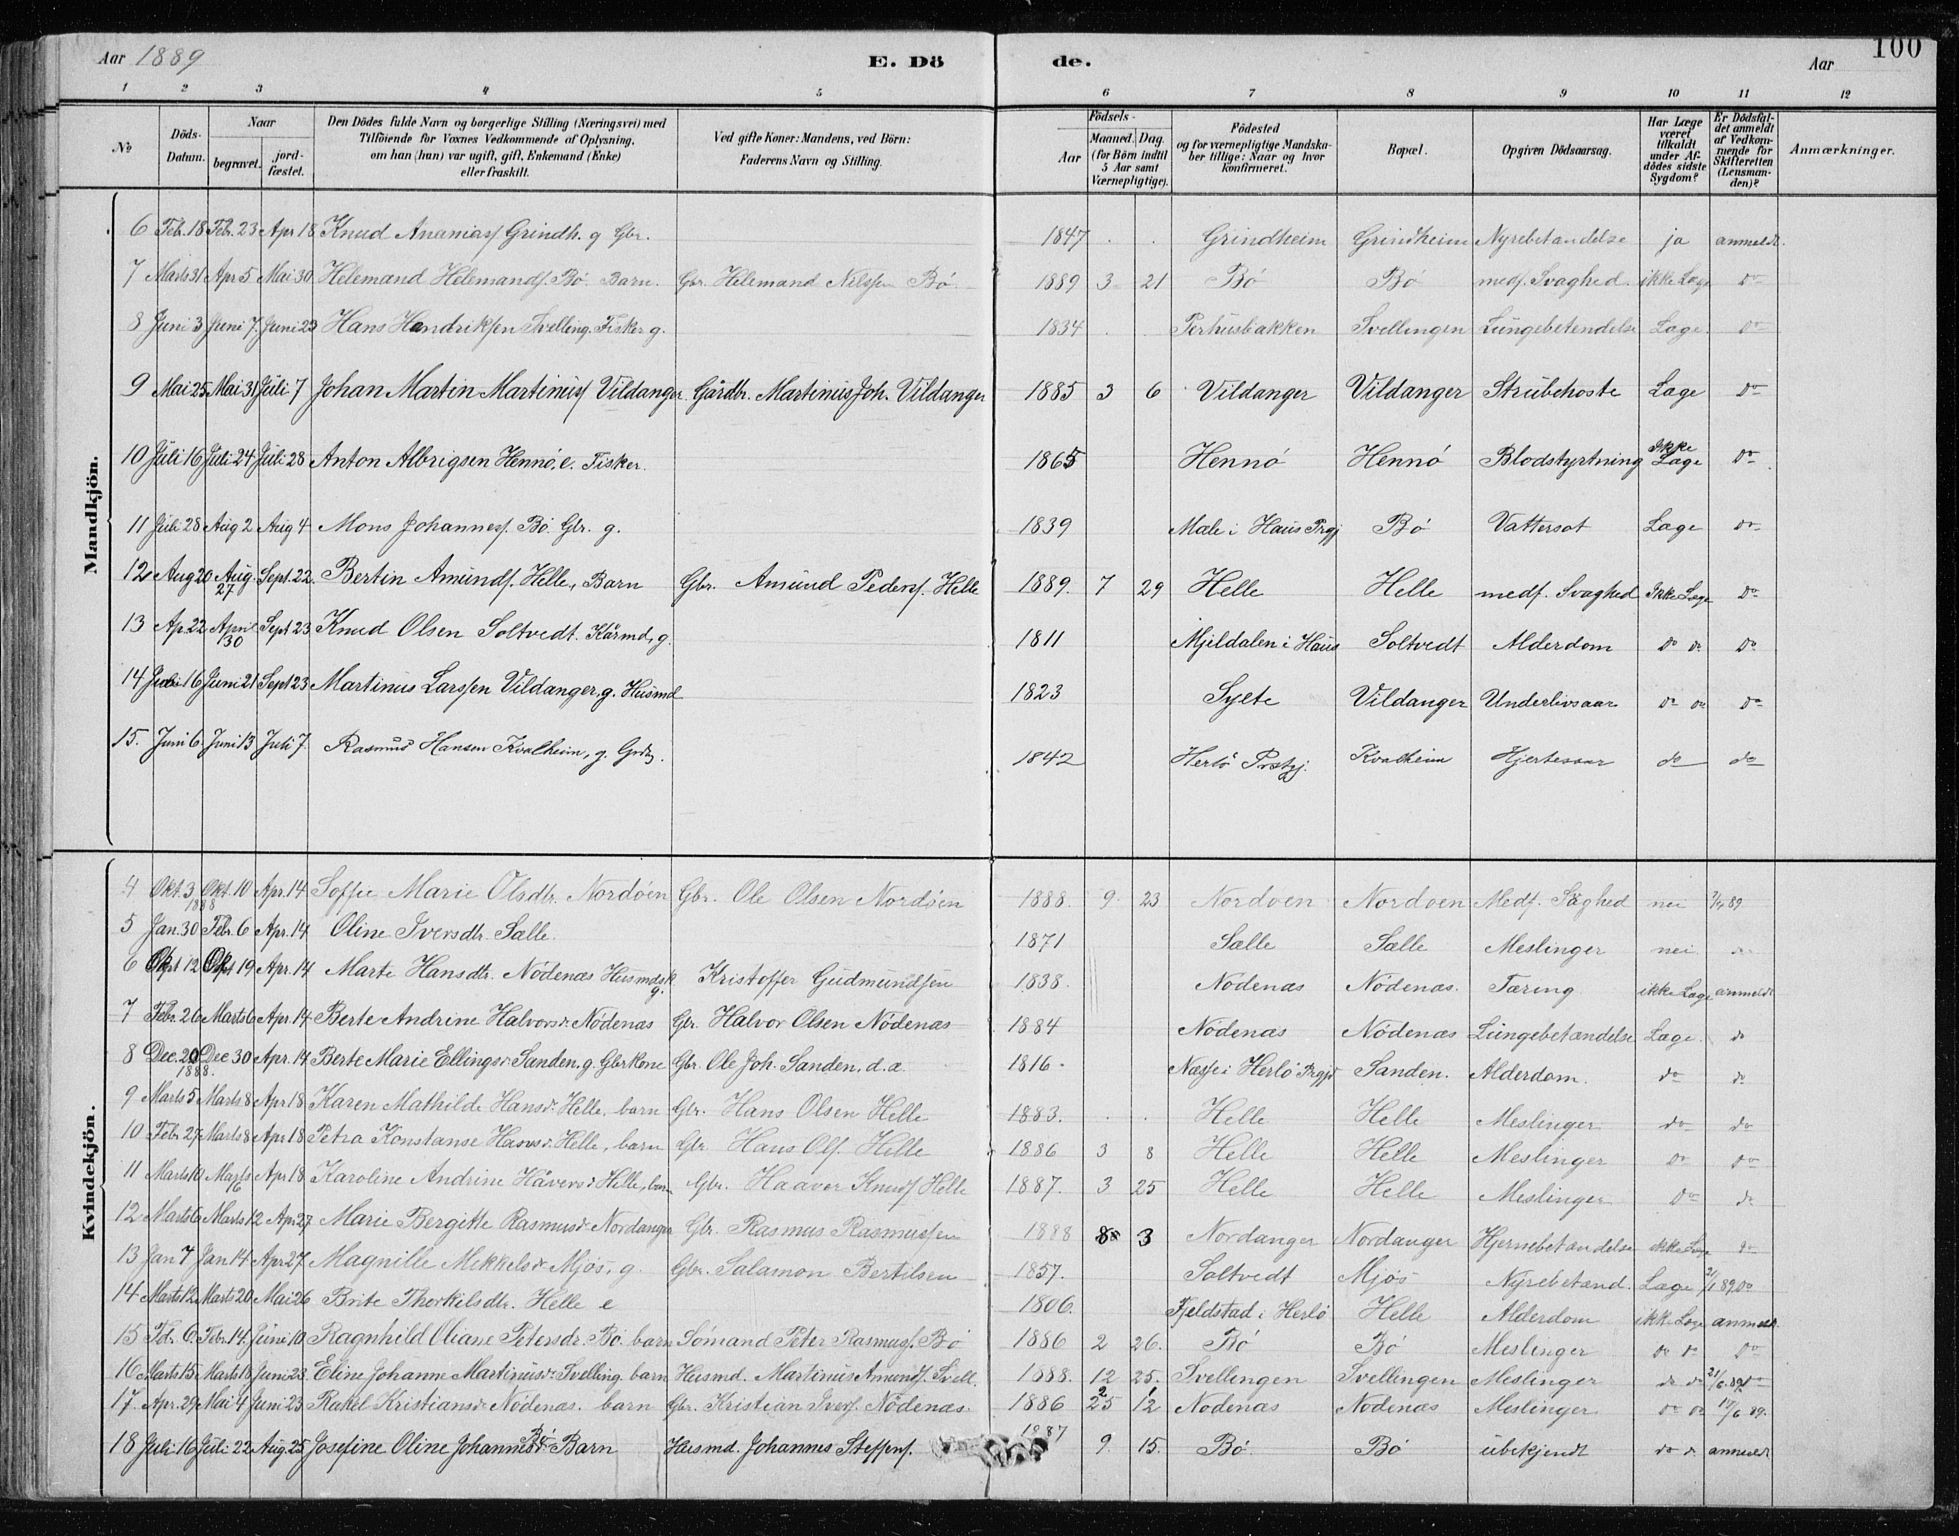 Aar 1889 E. Dö de. Aar 100
1 2 3 4 5 6 7 8 9 10 11 12
No
Döds-Datum.
Naar begravet. jordfæstet.
Den Dödes fulde Navn og borgerlige Stilling (Næringsvei) med
Tilföiende for Voxnes Vedkommende af Oplysning,
om han (hun) var ugift, gift, Enkemand (Enke)
eller fraskilt.
Ved gifte Koner: Mandens, ved Börn:
Faderens Navn og Stilling.
Födsels-
Aar Maaned. Dag.
(for Börn indtil 5 Aar samt Værnepligtige).
Födested
og for værnepligtige Mandskaber tillige: Naar og hvor konfirmeret.
Bopæl.
Opgiven Dödsaarsag.
Har Læge været tilkaldt under Afdödes sidste Sygdom?
Er Dödsfaldet anmeldt af Vedkommende for Skifteretten (Lensmanden)?
Anmærkninger.
Mandkjön.
6 Feb. 18 Feb. 23 Apr 18 Knud Ananiass Grindh. g Gbr. 1847 Grindheim Grindheim Nyrebetændelse ja anmeldt.
7 Marts 31 Apr 5 Mai 30 Helemand Helemands. Bö Barn. Gbr. Helemand Nilssen Bö 1889 3 21 Bö Bö medf. Svaghed. ikke Læge do
8 Juni 3 Juni 7. Juni 23 Hans Hendriksen Svelling. Fisker g. 1834 Perhusbakken Svellingen Lungebetendelse Læge. do
9 Mai 25 Mai 31 Juli 7 Johan Martin Martinuss Vildanger Gårdbr. Martinus Joh. Vildanger 1885 3 6 Vildanger Vildanger Strubehoste Læge do
10 Juli 16 Juli 24 Juli 28 Anton Albrigsen Hennö, e. Fisker. 1865 Hennö Hennö Blodstyrtning Ikke Læge do
11 Juli 28 Aug 2 Aug 4 Mons Johanness. Bö. Gbr. g. 1839 Mæle i Haus Prgj Bö Vattersot Læge do
12 Aug 20 Aug. 27 Sept. 22. Bertin Amunds. Helle, Barn Gbr. Amund Peders. Helle 1889. 7 29 Helle Helle medf. Svaghed Ikke Læge do
13 Ap. 22 April 30 Sept 23 Knud Olsen Soltvedt. Kårmd, g. 1811 Mjeldalen i Haus Soltvedt Alderdom do do do
14 Juni 16 Juni 21 Sept 23 Martinus Larssen Vildanger, g. Husmd 1823 Sylte Vildanger Underlivsaar do do do
15. Juni 6 Juni 13 Juli 7. Rasmus Hansen Kvalheim, g. Grdbr. 1842 Herlö Prstgj. Kvalheim Hjertesaar do do
Kvindekjön.
4 Okt. 3 1888 Okt. 10 Apr. 14 Soffie Marie Olsdtr. Nordöen Gbr. Ole Olsen Nordöen 1888. 9. 23 Nordöen Nordöen Medf. Svaghed nei 89
5 Jan. 30 Feb. 6 Apr. 14 Oline Iversdtr. Sælle. 1871 Sælle Sælle Meslinger nei do
6 Okt 12 Okt 19 Apr. 14 Marte Hansdtr. Nödenæs Husmdsk g. Kristoffer Gudmundsen 1838. Nödenæs Nödenæs. Tæring ikke Læge anmeldt
7 Febr. 26 Marts 6 Apr. 14 Berte Andrine Halvorsdr. Nödenæs Gbr. Halvor Olsen Nödenæs 1884 Nödenæs Nödenæs Lungebetændelse Læge. do
8 Dec. 20 1888. Dec 30 Apr. 14 Berte Marie Ellingsdr. Sanden, g. Gbrkone Gbr. Ole Joh. Sanden. d.a. 1816. Næsse i Herlö Prgjd Sanden. Alderdom. do do
9 Marts 5 Marts 8 Apr 18 Karen Mathilde Hansdr. Helle, barn Gbr. Hans Olsen Helle 1883. Helle Helle Meslinger do do
10 Feb. 27 Marts 8 Apr 18 Petra Konstanse Hansdr. Helle, barn Gbr. Hans Ols. Helle 1886 3 8 Helle Helle Meslinger do do
11 Marts 10 Marts 16 Apr 18 Karoline Andrine Håversdr Helle, barn Gbr. Haaver Knuds. Helle 1887. 3 25 Helle Helle Meslinger do do
12 Marts 6 Marts 12 Apr 27 Marie Bergitte Rasmusdr Nordanger Gbr. Rasmus Rasmussen 1888 8 3 Nordanger Nordanger Hjernebetændelse ikke Læge do
13 Jan 7 Jan 14 Apr 27. Magnille Mikkelsdr Mjös, g. Gbr. Salamon Bertilsen 1857. Soltvedt Mjös Nyrebetænd. Læge 89 do
14 Marts 12 Marts 20 Mai 26 Brite Thorkilsdtr. Helle e 1806. Fjeldstad i Herlö Helle Alderdom ikke Læge anmeldt
15 Feb. 6. Febr. 14. Juni 10 Ragnhild Oliane Petersdr. Bö. barn Sömand Peter Rasmuss. Bö 1886 2 26. Bö Bö Meslinger do do do
16 Marts 15 Marts 18 Juni 23. Eline Johanne Martinusdr. Svelling. barn Husmd. Martinus Amunds. Svell. 1888. 12 25. Svellingen Svellingen Meslinger do do 21/6.89 do
17. Apr. 29 Mai 4 Juni 23 Rakel Kristiansdr Nödenæs. barn Gbr. Kristian Ivers. Nödenæs. 1886 2 25 1 12 Nödenæs Nödenæs Meslinger do do 17/6 89.
18 Juli 16 Juli 22 Aug. 25 Josefine Oline Johannesdr. Bö Barn Husmd. Johannes Steffens. 1887 9. 15. Bö Bö ubekjendt do do anmeldt